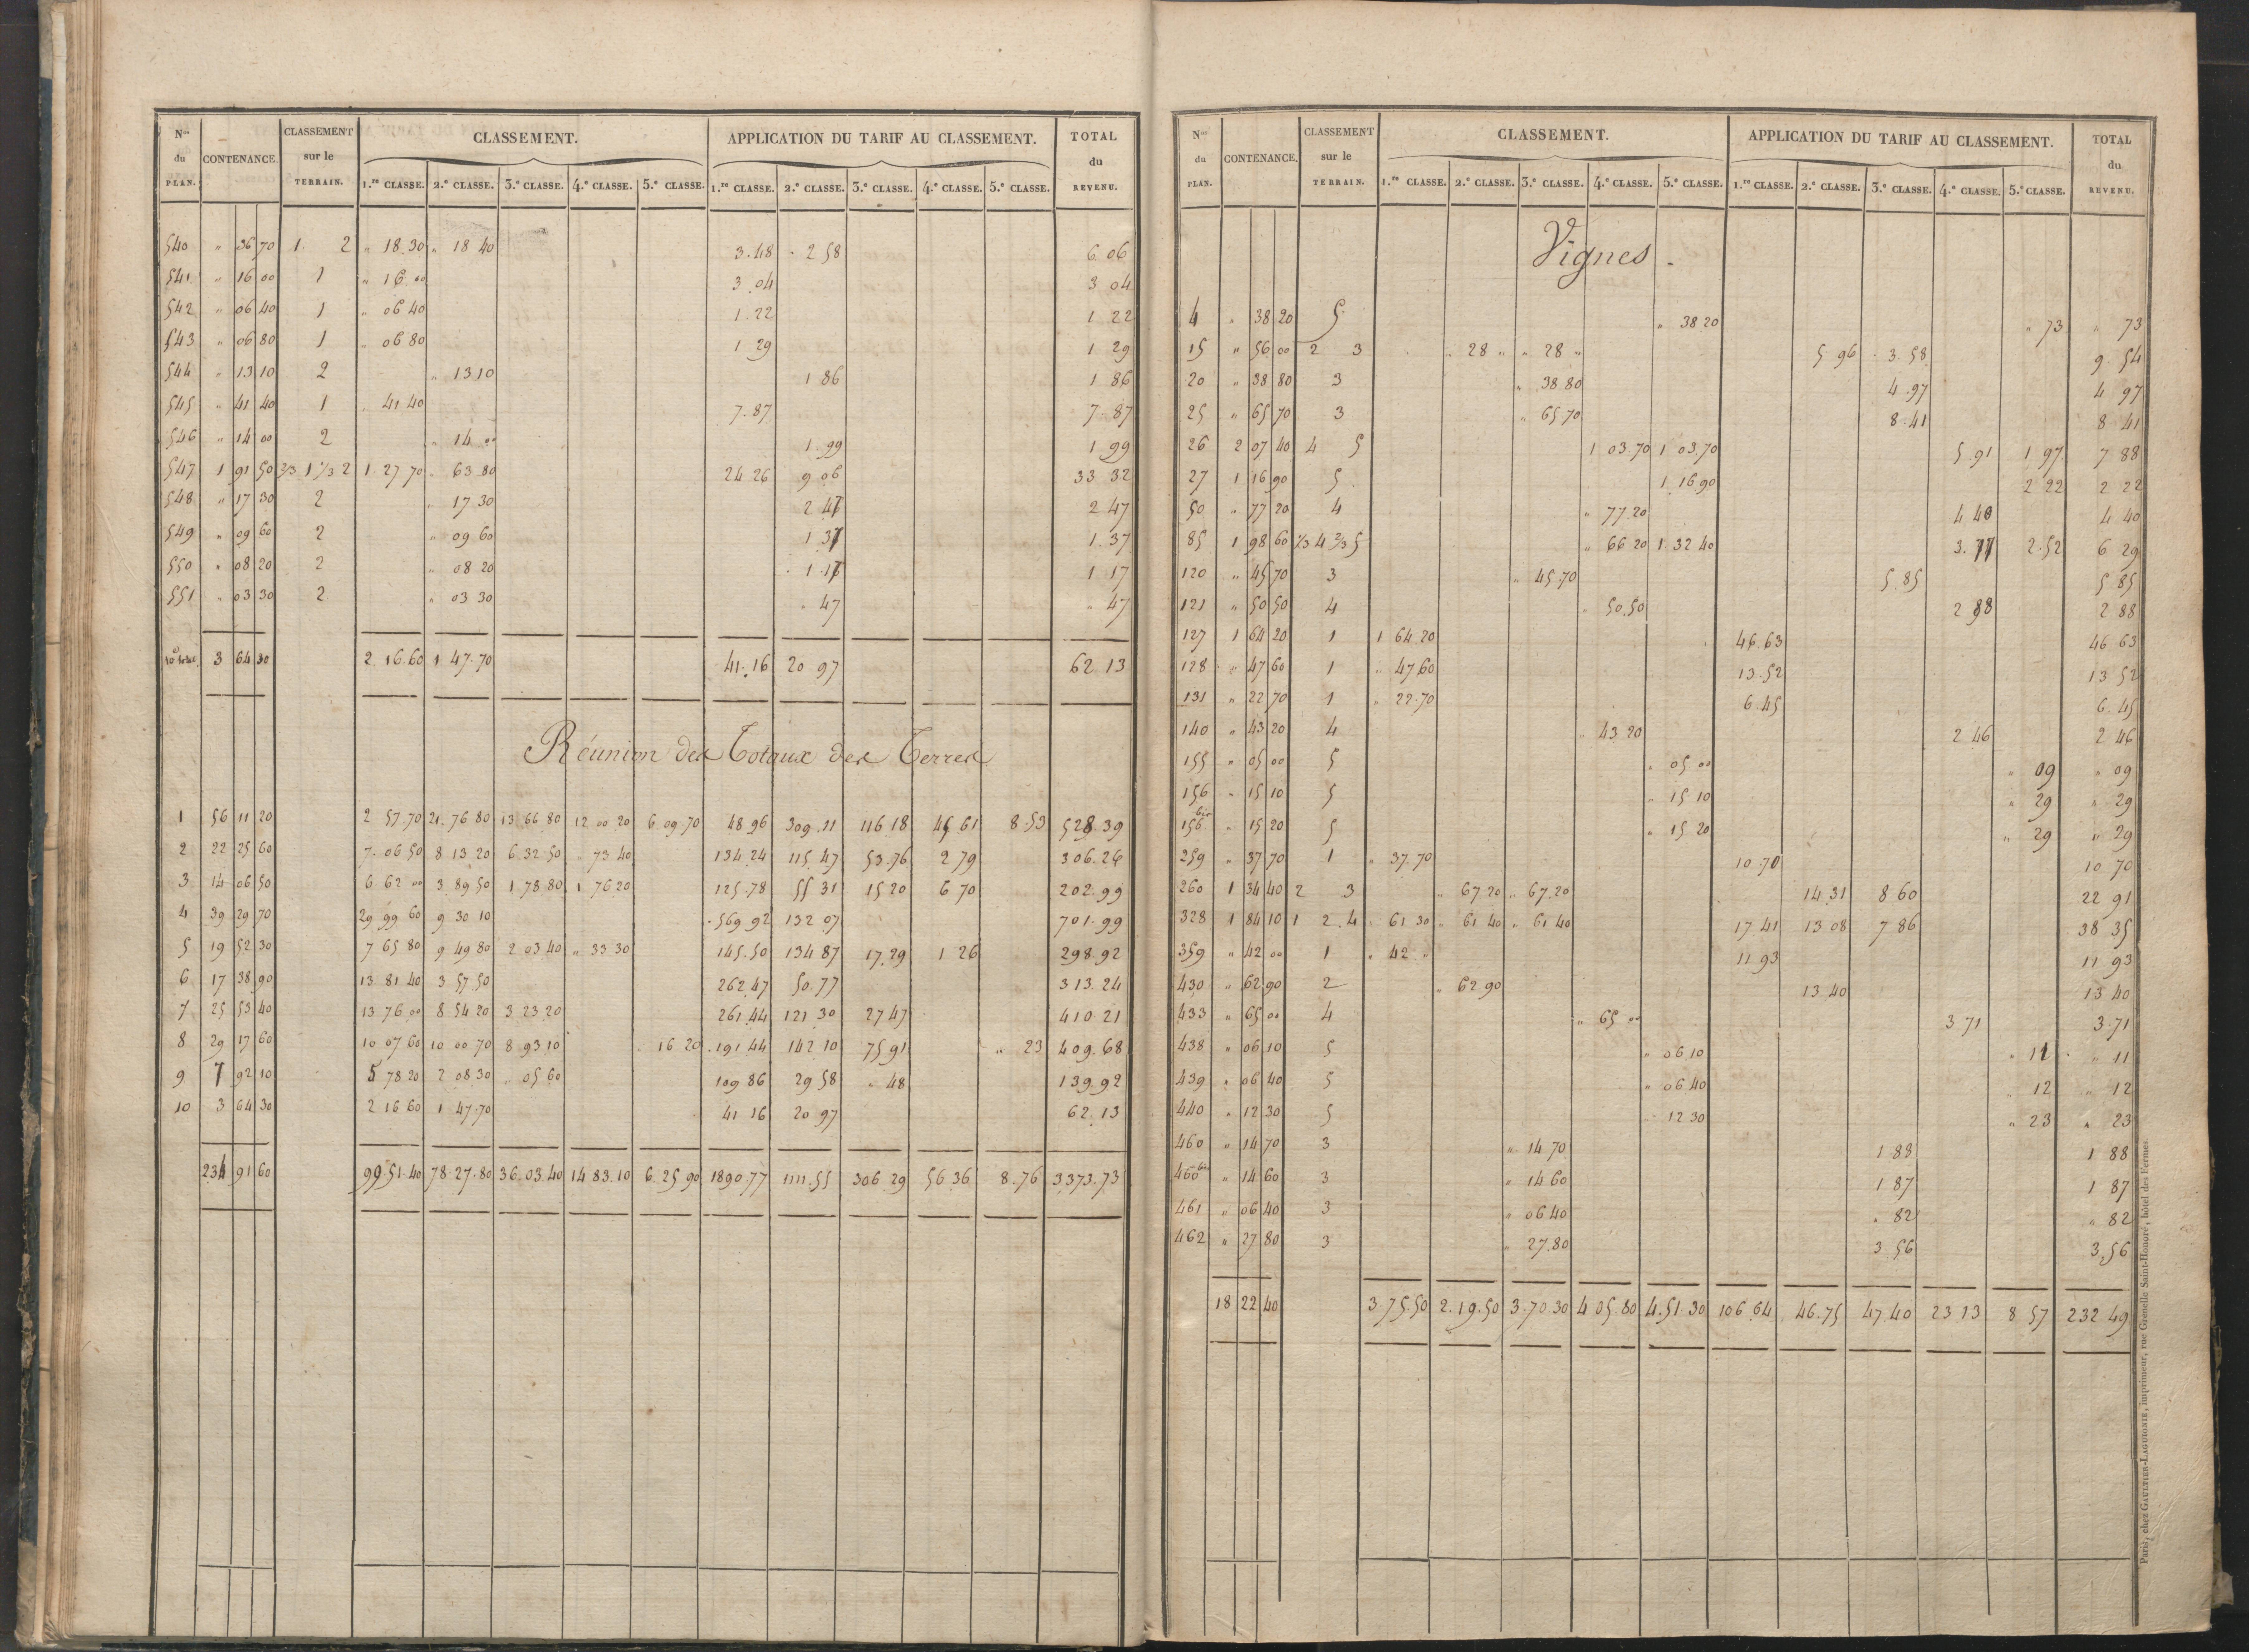 Nos du PLAN. CONTENANCE. CLASSEMENT sur le TERRAIN. CLASSEMENT. APPLICATION DU TARIF AU CLASSEMENT. TOTAL du REVENU.
1.re CLASSE. 2.e CLASSE. 3.e CLASSE. 4.e CLASSE. 5.e CLASSE. 1.re CLASSE. 2.e CLASSE. 3.e CLASSE. 4.e CLASSE. 5.e CLASSE.
540 " 36 70 1 2 " 18.30 " 18 40 3.48 2 58 6 06
541 " 16 00 1 " 16 00 3 04 3 04
542 " 06 40 1 " 06 40 1.22 1 22
543 " 06 80 1 " 06 80 1 29 1 29
544 " 13 10 2 " 13 10 1 86 1 86
545 " 41 40 1 " 41 40 7.87 7.87
546 " 14 00 2 " 14 00 1.99 1 99
547 1 91 50 2/3 1 1/3 2 1.27 70 " 63 80 24 26 9 06 33 32
548 " 17 30 2 " 17 30 2 47 2 47
549 " 09 60 2 " 09 60 1.37 1.37
550 " 08 20 2 " 08 20 1.17 1 17
551 " 03 30 2 " 03 30 " 47 " 47
3 64 30 2.16.60 1 47.70 41.16 20 97 62 13
Réunion des Totaux des Terres
1 56 11 20 2 57.70 21.76 80 13 66 80 12 00 20 6 09.70 48 96 309.11 116.18 45 61 8.53 528.39
2 22 25 60 7.06 50 8 13 20 6.32 50 " 73 40 134.24 115.47 53.76 2 79 306.26
3 14 06 50 6 62 00 3.89.50 1.78.80 1 76 20 125.78 55 31 15 20 6 70 202.99
4 39 29 70 29 99 60 9 30 10 569 92 132 07 701.99
5 19 52 30 7 65 80 9 49 80 2 03 40 " 33 30 145.50 134 87 17.29 1 26 298.92
6 17 38 90 13 81 40 3 57 50 262.47 50.77 313.24
7 25 53 40 13 76 00 8 54 20 3 23 20 261.44 121 30 27 47 410 21
8 29 17 60 10 07 60 10 00 70 8 93 10 " 16 20 191 44 142 10 75 91 " 23 409.68
9 7 92 10 5 78 20 2 08 30 " 05 60 109 86 29 58 " 48 139.92
10 3 64 30 2 16 60 1 47.70 41 16 20 97 62.13
234 91 60 99.51.40 78.27.80 36.03.40 14 83.10 6.25 90 1890.77 1111.55 306 29 56 36 8.76 3373.73
Nos du PLAN. CONTENANCE. CLASSEMENT sur le TERRAIN. CLASSEMENT. APPLICATION DU TARIF AU CLASSEMENT. TOTAL du REVENU.
1.re CLASSE. 2.e CLASSE. 3.e CLASSE. 4.e CLASSE. 5.e CLASSE. 1.re CLASSE. 2.e CLASSE. 3.e CLASSE. 4.e CLASSE. 5.e CLASSE.
Vignes
4 " 38 20 5 " 38 20 " 73 " 73
15 " 56 00 2 3 " 28 " " 28 " 5 96 3.58 9 54
20 " 38 80 3 " 38 80 4.97 4 97
25 " 65 70 3 " 65 70 8.41 8 41
26 2 07 40 4 5 1 03.70 1 03.70 5.91 1 97 7 88
27 1 16 90 5 1 16 90 2 22 2 22
50 " 77 20 4 " 77.20 4 40 4 40
85 1 98 60 1/3 4 2/3 5 " 66 20 1 32 40 3.77 2.52 6 29
120 " 45 70 3 " 45.70 5.85 5 85
121 " 50 50 4 " 50.50 2 88 2 88
127 1 64 20 1 1 64.20 46.63 46 63
128 " 47 60 1 " 47 60 13.52 13 52
131 " 22 70 1 " 22.70 6.45 6.45
140 " 43 20 4 " 43 20 2 46 2 46
155 " 05 00 5 " 05 00 " 09 " 09
156 " 15 10 5 " 15 10 " 29 " 29
156 bis " 15 20 5 " 15 20 " 29 " 29
259 " 37 70 1 " 37.70 10.70 10 70
260 1 34 40 2 3 " 67 20 " 67.20 14.31 8 60 22 91
328 1 84 10 1 2.4 " 61 30 " 61 40 " 61 40 17.41 13 08 7 86 38 35
359 " 42 00 1 " 42 " 11.93 11 93
430 " 62 90 2 " 62 90 13 40 13 40
433 " 65 00 4 " 65 00 3 71 3.71
438 " 06 10 5 " 06 10 " 11 " 11
439 " 06 40 5 " 06 40 " 12 " 12
440 " 12 30 5 12 30 " 23 " 23
460 " 14 70 3 " 14 70 1 88 1 88
460 bis " 14 60 3 " 14 60 1 87 1 87
461 " 06 40 3 " 06 40 " 82 " 82
462 " 27 80 3 " 27.80 3 56 3,56
18 22 40 3.75.50 2.19.50 3.70 30 4 05.80 4.51.30 106 64 46.75 47.40 23 13 8 57 232 49
Paris, chez GAULTIER-LAGUIONIE, imprimeur, rue Grenelle Saint-Honoré, hôtel des Fermes.